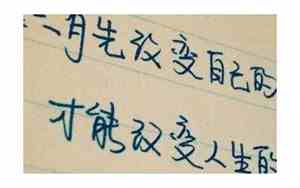 二月先改变自己的
才能改变人生的